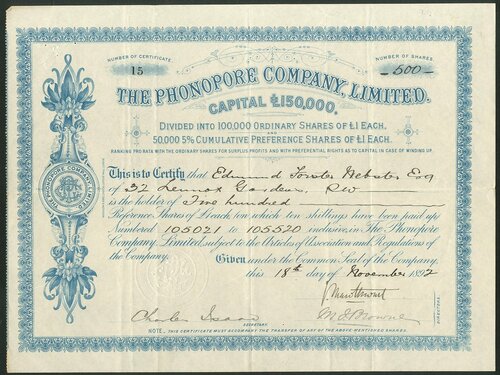 NUMBER OF CERTIFICATE
15
NUMBER OF SHARES
500
THE PHONOPORE COMPANY, LIMITED.
CAPITAL £150,000.
DIVIDED INTO 100,000 ORDINARY SHARES OF £1 EACH,
AND
50,000 5% CUMULATIVE PREFERENCE SHARES OF £1 EACH.
RANKING PRO RATA WITH THE ORDINARY SHARES FOR SURPLUS PROFITS AND WITH PREFERENTIAL RIGHTS AS TO CAPITAL IN CASE OF WINDING UP.
THE PHONOPORE COMPANY, LIMITED
This is to Certify that Edmund Forster Webster Esq
of 32 Lennox Gardens, SW
is the holder of Five hundred
Preference Shares of £1 each, (on which ten shillings have been paid up)
Numbered 105021 to 105520 inclusive, in The Phonopore
Company, Limited, subject to the Articles of Association and Regulations of
the Company.
Given under the Common Seal of the Company,
this 18th day of November 1892
Charles
SECRETARY
DIRECTORS.
NOTE, THIS CERTIFICATE MUST ACCOMPANY THE TRANSFER OF ANY OF THE ABOVE-MENTIONED SHARES.